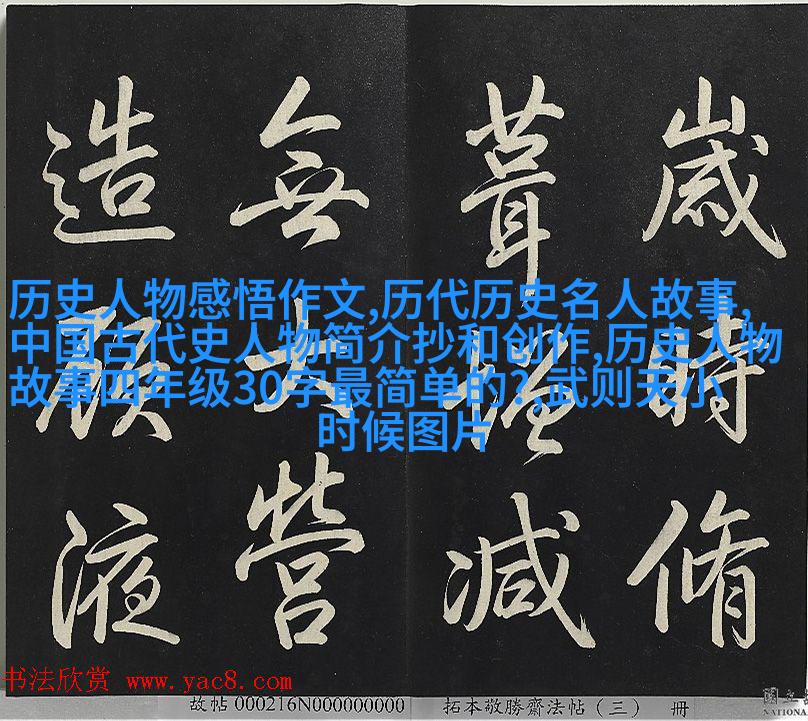 歲時脩
葺減
無大營
造顧液
历史人物感悟作文,历代历史名人故事,
中国古代史人物简介抄和创作,历史人物
故事四年级30字最简单的?,武则天小
时候图片
书法欣赏 www.yac8.com
故帖 000216N000000000 拓本敬勝齋法帖（三） 冊
國立
NATIONA